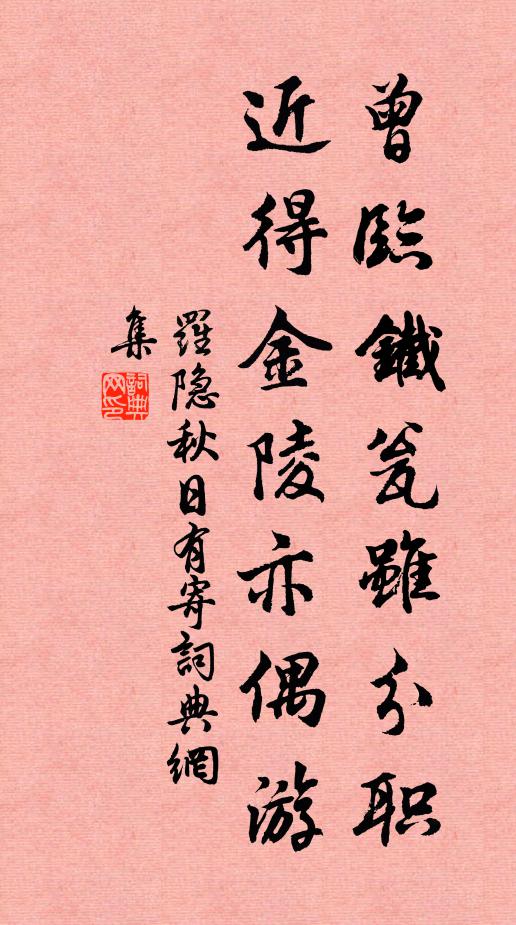 曾臨鐵瓮雖分职
近得金陵亦偶游
羅隐秋日有寄詞典網
集
詞典
网印